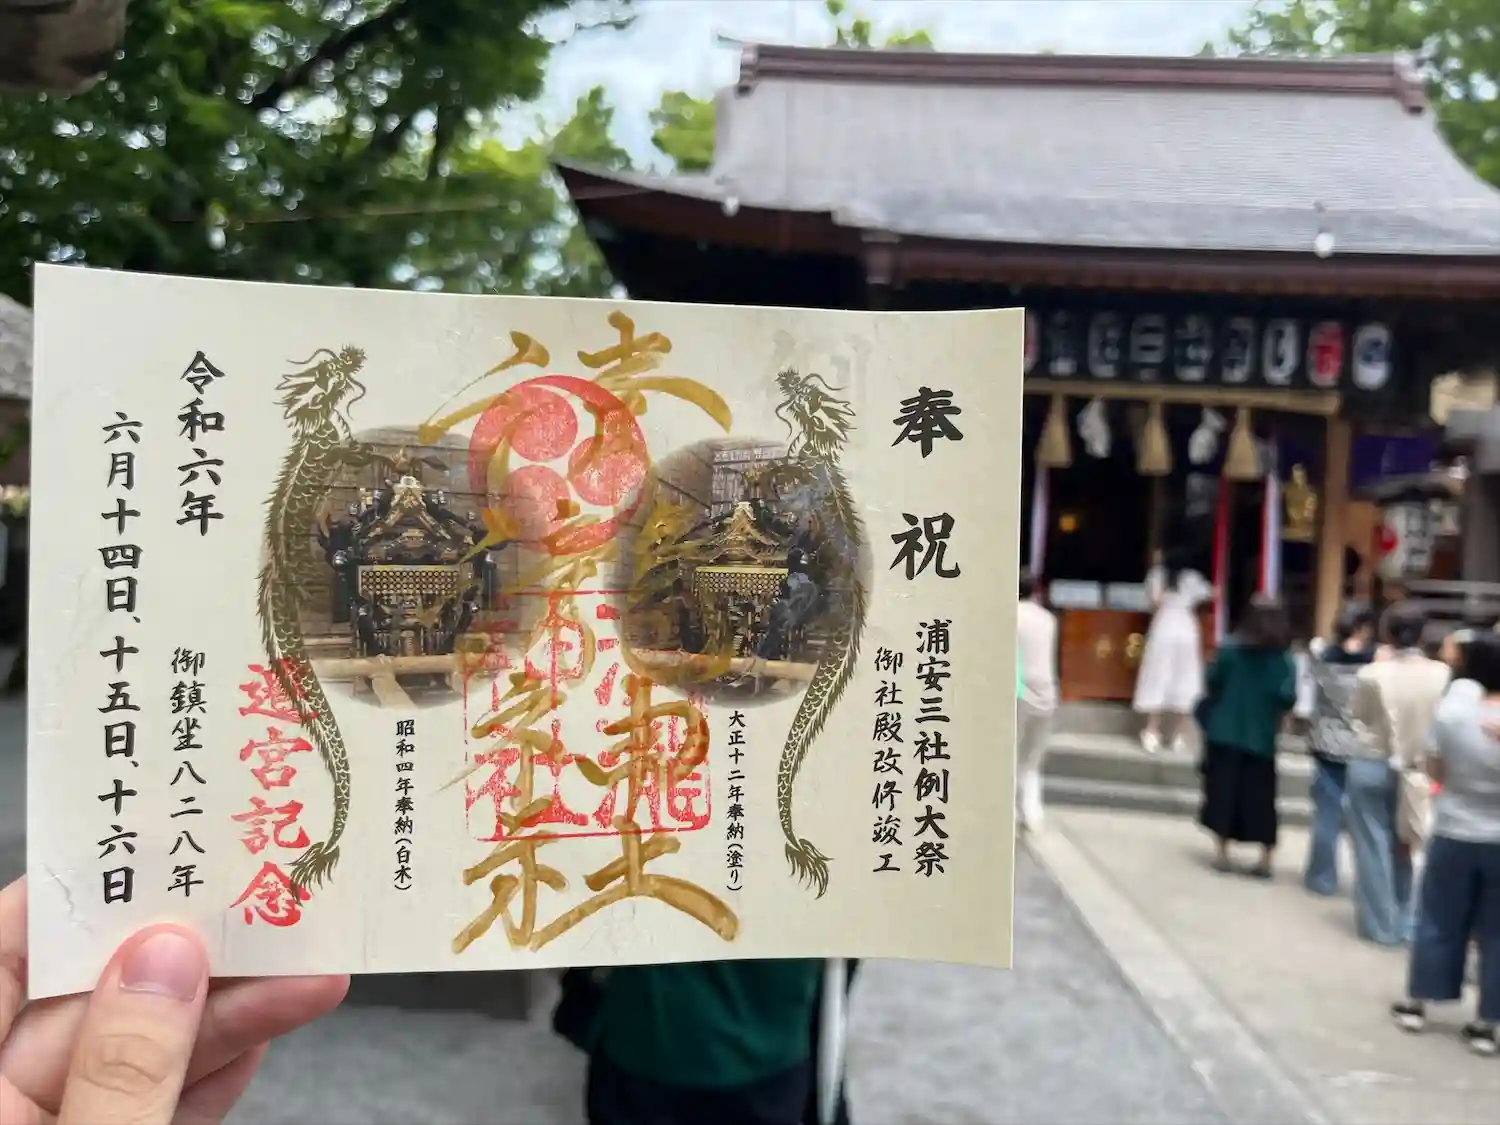 奉祝
浦安三社例大祭
御社殿改修竣工
大正十二年奉納(塗り)
清瀧神社
清瀧神社
昭和四年奉納(白木)
遷宮記念
令和六年
御鎮坐八二八年
六月十四日、十五日、十六日